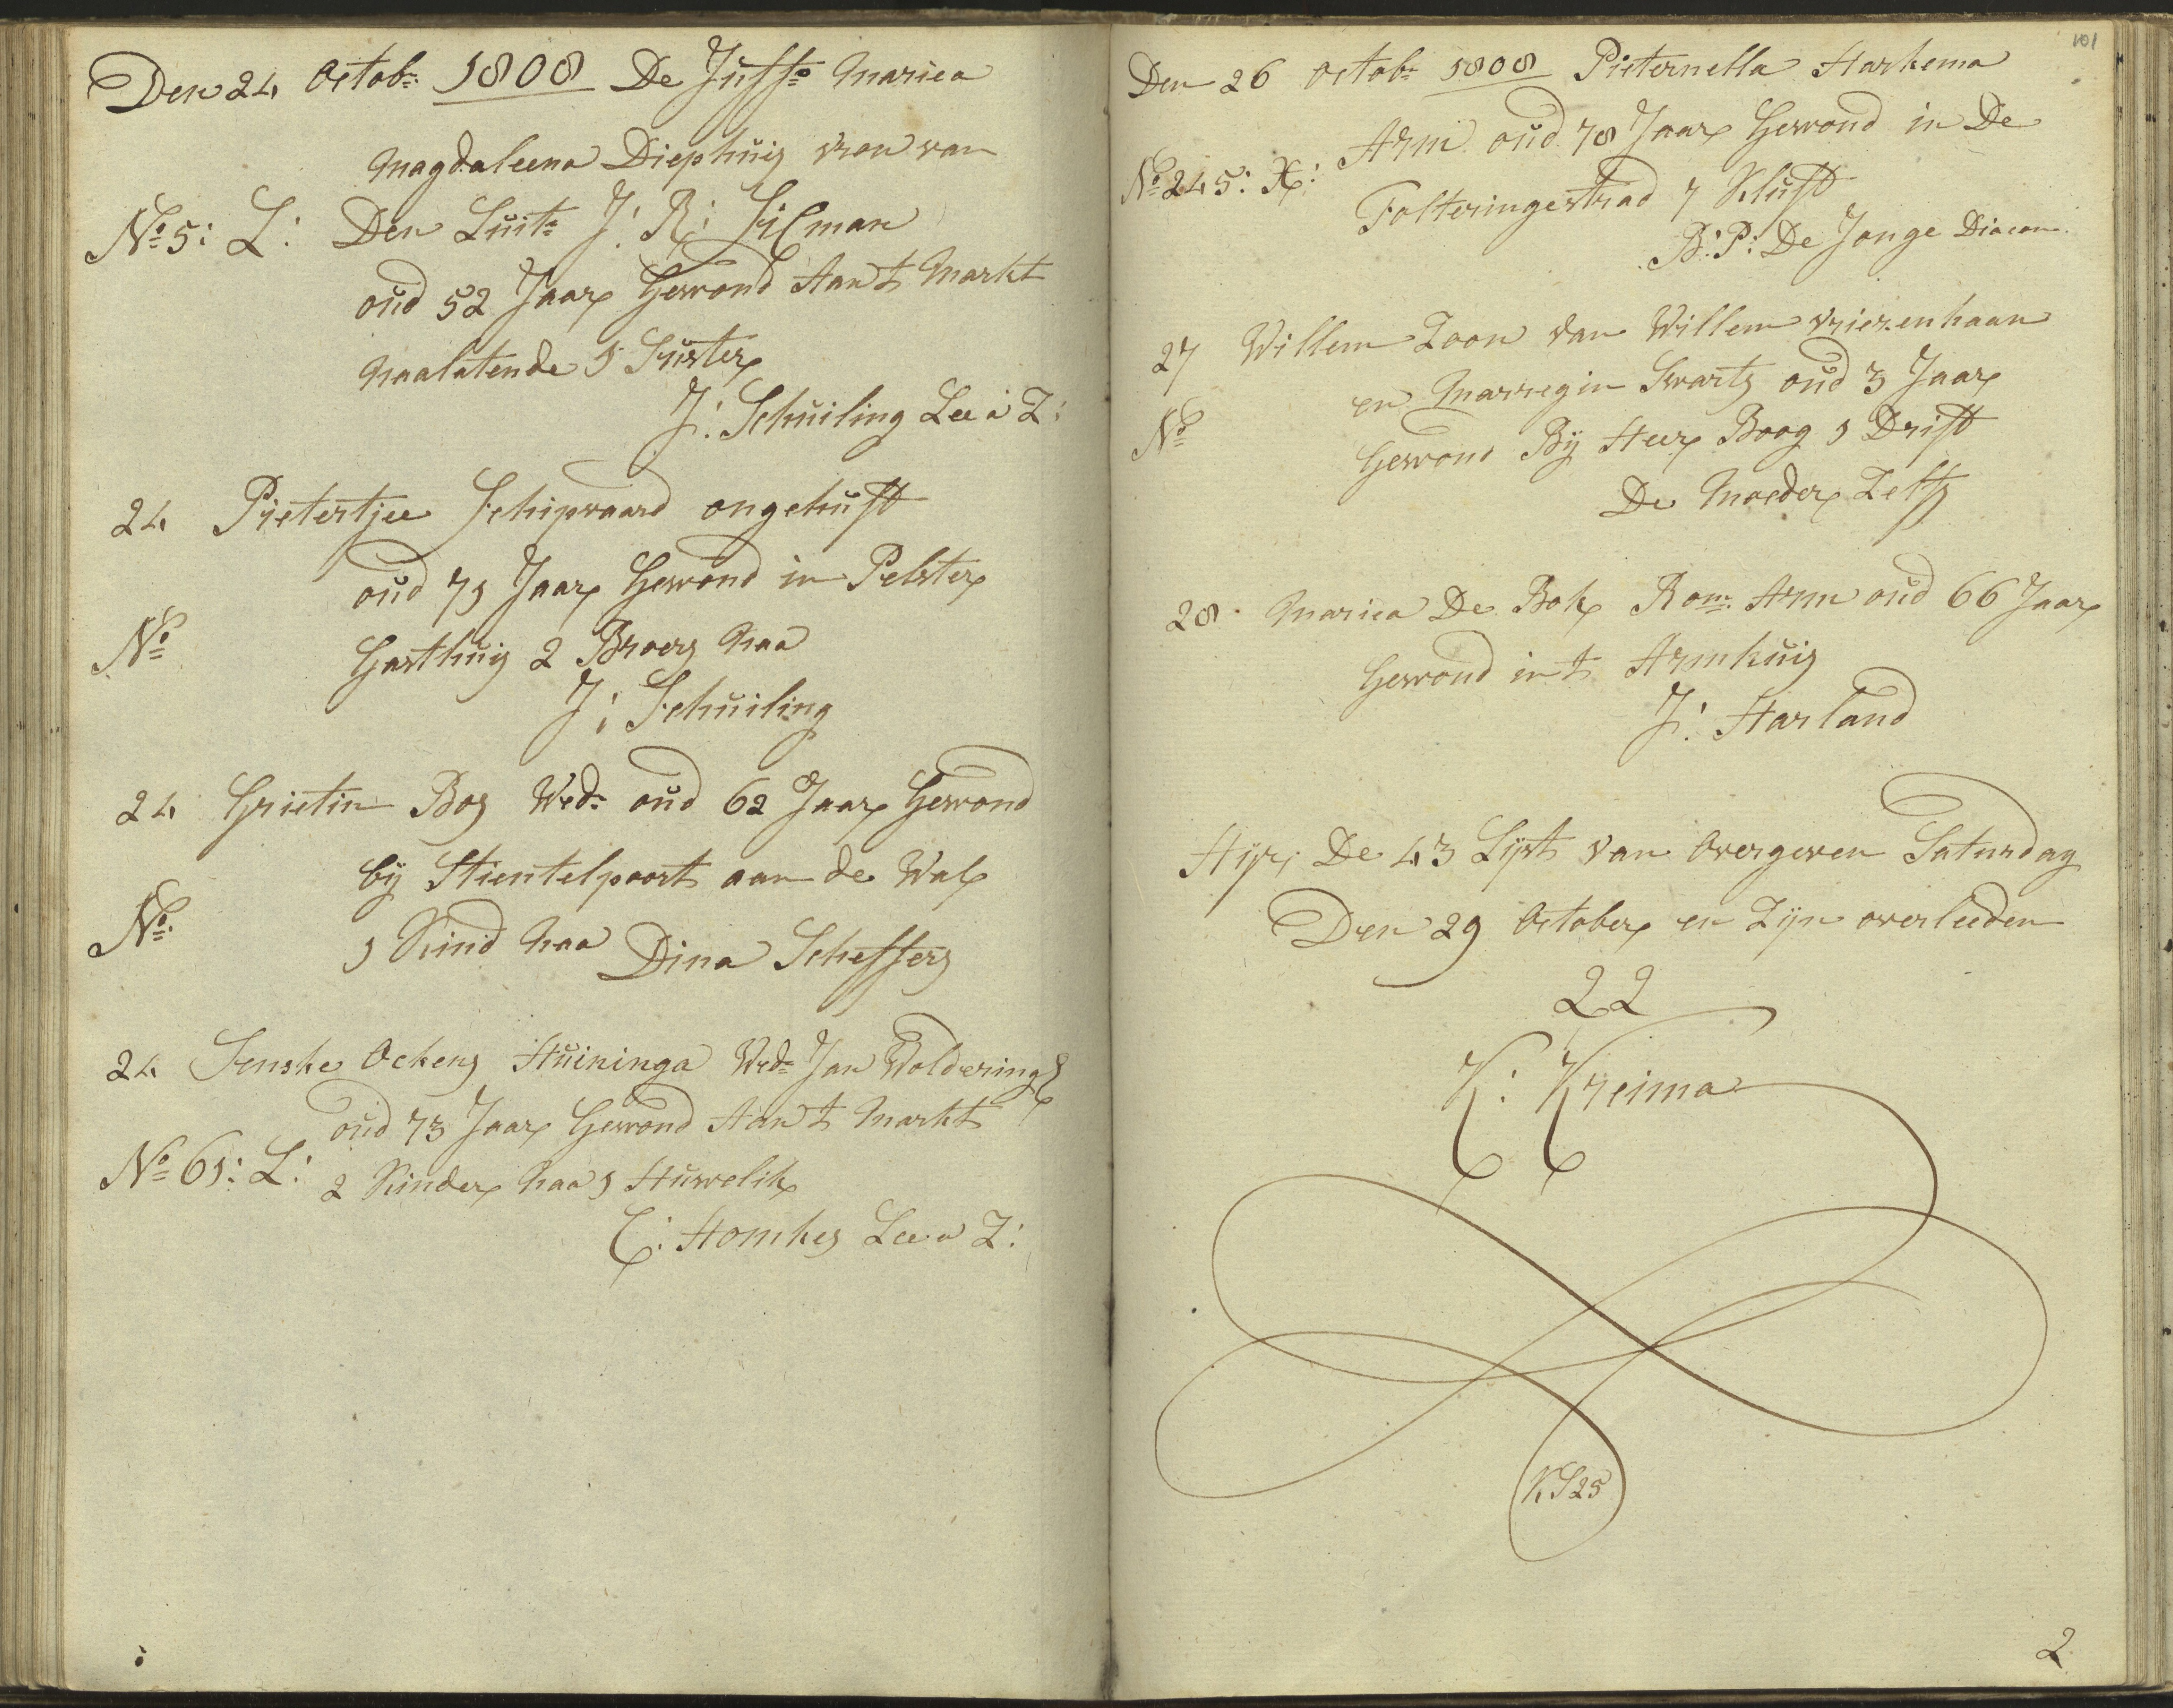 Den 24 Octobr: 1808 De Juffr Mariea
Magdaleena Diephuis vrou van
No 5: L: Den Luitt J: R: Silman
oud 52 Jaar Gewond Aan t Markt
Naalatende 1 Suster
J: Schuiling Lee a Z:
24 Pietertjee Schipvaard ongehuft
oud 71 Jaar Gewond in Pelster
No Gasthuis 2 Broers Naa
J: Schuiling
24 Grietin Bos Wed: oud 62 Jaar Gewond
bij Stientelpoort aan de Wal
No 1 Kind Naa Dina Scheffers
24 Senske Ockens Huininga Wed: Jan Wolderings
oud 73 Jaar Gewond Aan t Markt
No 61: L: 2 Kinder Naa 1 Huwelik
C: Homkes Lee a Z:
101
Den 26 Octobr 1808 Pieternella Harkema
No 245: X: Arm oud 78 Jaar Gewond in De
Folteringestrad 7 Kluft
B: P: De Jonge Diacon
27 Willem Zoon van Willem Vriezenhaan
en Marregin Swarts oud 3 Jaar
No Gewond Bij Heer Boog 1 Drift
De Moeder Zelfs
28 Mariea De Bok Rom: Arm oud 66 Jaar
Gewond in t Armhuis
J: Harland
Hijr; De 43 Lijst van Overgeven Saturdag
Den 29 October en Zijn overleeden
22
K: Kreima
KS25
2